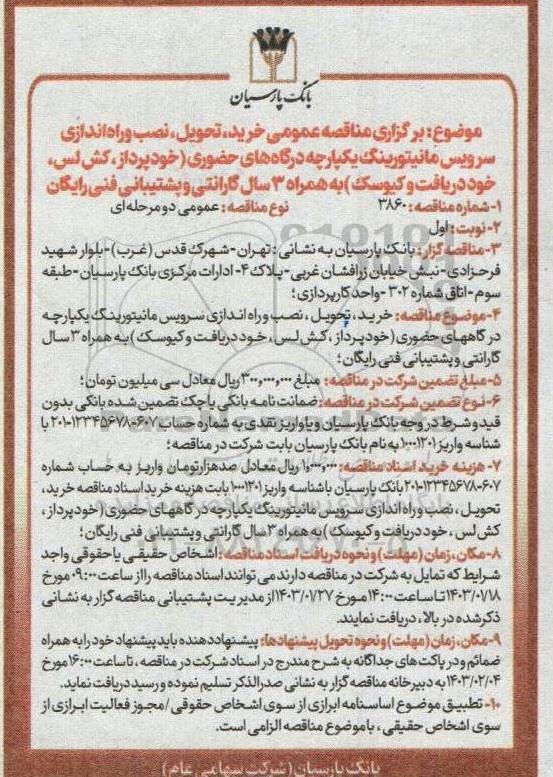 بانک پارسیان
موضوع: برگزاری مناقصه عمومی خرید، تحویل، نصب وراه اندازی
سرویس مانیتورینگ یکپارچه درگاه‌های حضوری (خودپرداز، کش لس،
خود دریافت و کیوسک) به همراه ۳ سال گارانتی و پشتیبانی فنی رایگان
۱- شماره مناقصه: ۳۸۶۰ نوع مناقصه: عمومی دو مرحله ای
۲- نوبت: اول
۳- مناقصه گزار: بانک پارسیان به نشانی: تهران - شهرک قدس (غرب) - بلوار شهید
فرحزادی - نبش خیابان زرافشان غربی - پلاک ۴ - ادارات مرکزی بانک پارسیان - طبقه
سوم - اتاق شماره ۳۰۲ - واحد کارپردازی؛
۴- موضوع مناقصه: خرید، تحویل، نصب وراه اندازی سرویس مانیتورینگ یکپارچه
درگاههای حضوری (خودپرداز، کش لس، خود دریافت و کیوسک) به همراه ۳ سال
گارانتی و پشتیبانی فنی رایگان؛
۵- مبلغ تضمین شرکت در مناقصه: مبلغ ۳۰۰،۰۰۰،۰۰۰ ریال معادل سی میلیون تومان؛
۶- نوع تضمین شرکت در مناقصه: ضمانت نامه بانکی یا چک تضمین شده بانکی بدون
قید و شرط در وجه بانک پارسیان و یا واریز نقدی به شماره حساب ۶۰۷-۱۲۳۴۵۶۷۸-۲۰۱ با
شناسه واریز ۱۰۰۰۱۲۰۱ به نام بانک پارسیان بابت شرکت در مناقصه؛
۷- هزینه خرید اسناد مناقصه: ۱،۰۰۰،۰۰۰ ریال معادل صدهزار تومان واریز به حساب شماره
۶۰۷-۱۲۳۴۵۶۷۸-۲۰۱ بانک پارسیان با شناسه واریز ۱۰۰۰۱۲۰۱ بابت هزینه خرید اسناد مناقصه خرید،
تحویل، نصب وراه اندازی سرویس مانیتورینگ یکپارچه درگاههای حضوری (خودپرداز،
کش لس، خود دریافت و کیوسک) به همراه ۳ سال گارانتی و پشتیبانی فنی رایگان؛
۸- مکان، زمان (مهلت) و نحوه دریافت اسناد مناقصه: اشخاص حقیقی یا حقوقی واجد
شرایط که تمایل به شرکت در مناقصه دارند می توانند اسناد مناقصه را از ساعت ۰۹:۰۰ مورخ
۱۴۰۳/۰۱/۱۸ تا ساعت ۱۴:۰۰ مورخ ۱۴۰۳/۰۱/۲۷ از مدیریت پشتیبانی مناقصه گزار به نشانی
ذکر شده در بالا، دریافت نمایند.
۹- مکان، زمان (مهلت) و نحوه تحویل پیشنهادها: پیشنهاد دهنده باید پیشنهاد خود را به همراه
ضمائم و در پاکت های جداگانه به شرح مندرج در اسناد شرکت در مناقصه، تا ساعت ۱۶:۰۰ مورخ
۱۴۰۳/۰۲/۰۴ به دبیرخانه مناقصه گزار به نشانی صدرالذکر تسلیم نموده و رسید دریافت نماید.
۱۰- تطبیق موضوع اساسنامه ابرازی از سوی اشخاص حقوقی / مجوز فعالیت ابرازی از
سوی اشخاص حقیقی، با موضوع مناقصه الزامی است.
بانک پارسیان (شرکت سهامی عام)